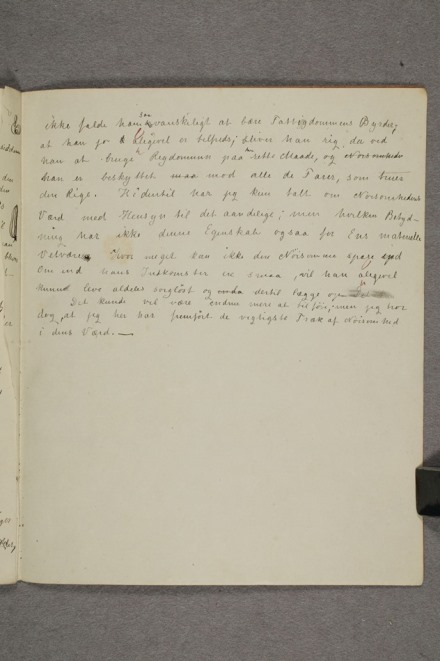 ikke falde ham saa vanskeligt at bære Fattigdommens Byrder,
at han jo er tilfreds; bliver han rig, da ved
han at bruge Rigdommen paa rette Maade, og Nøisomheden
han er beskyttet mod alle de Farer, som true
den Rige. Hidentil har jeg kun talt om Nøisomhedens
Værd med Hensyn til det aandelige; men hvilken Betyd-
ning har ikke denne Egenskab ogsaa for Ens materielle
Velvære. Hvor meget kan ikke den Nøisomme spare
Om end hans Indkomster ere smaa, vil han alligevel
kunne leve aldeles sorgløst og endda dertil lægge op
Det kunde vel være endnu mere at tilføie; men jeg tror
dog, at jeg her har fremført de vigtigste Træk af Nøisomhed
i dens Værd. —